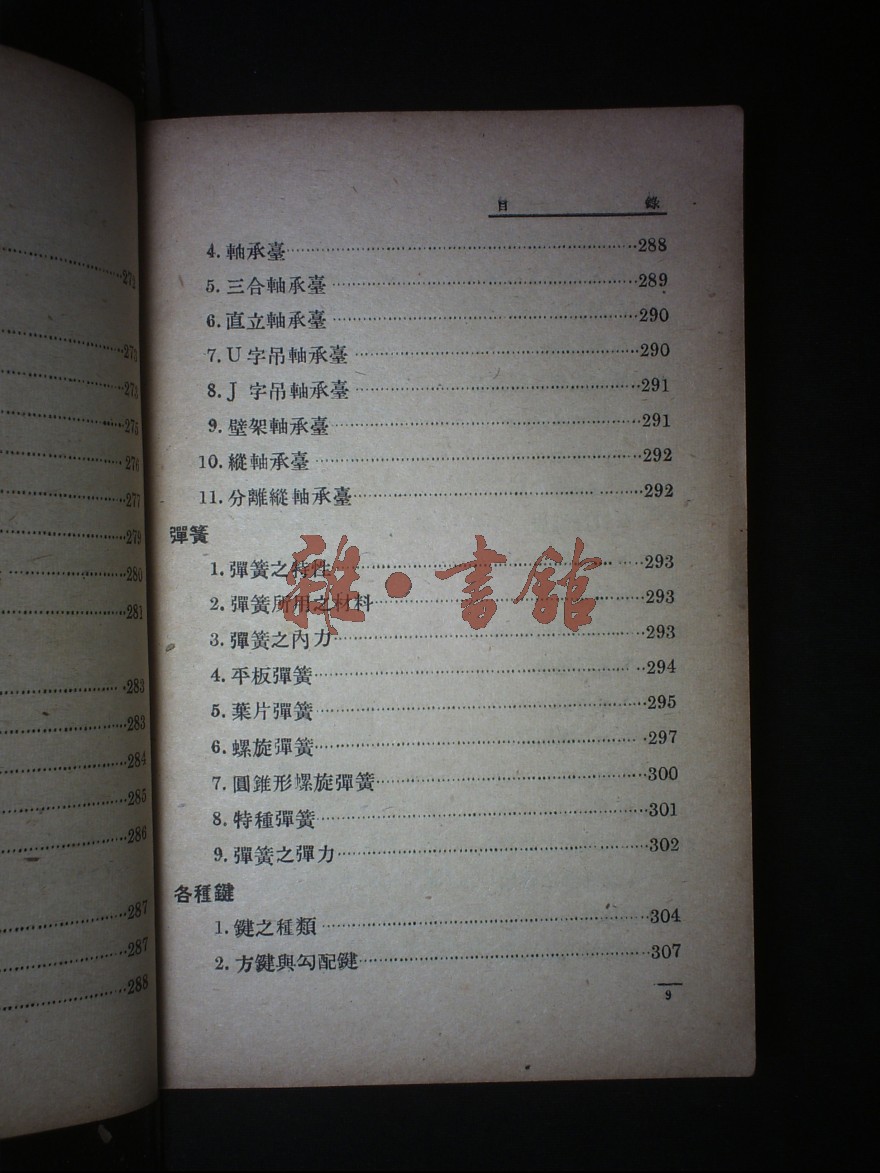 272
273
273
275
276
277
279
280
281
283
283
284
285
286
287
287
288
目 錄
4. 軸承臺 288
5. 三合軸承臺 289
6. 直立軸承臺 290
7. U 字吊軸承臺 290
8. J 字吊軸承臺 291
9. 壁架軸承臺 291
10. 縱軸承臺 292
11. 分離縱軸承臺 292
彈簧
1. 彈簧之特性 293
2. 彈簧所用之材料 293
3. 彈簧之內力 293
4. 平板彈簧 294
5. 葉片彈簧 295
6. 螺旋彈簧 297
7. 圓錐形螺旋彈簧 300
8. 特種彈簧 301
9. 彈簧之彈力 302
各種鍵
1. 鍵之種類 304
2. 方鍵與勾配鍵 307
9
雜·書館